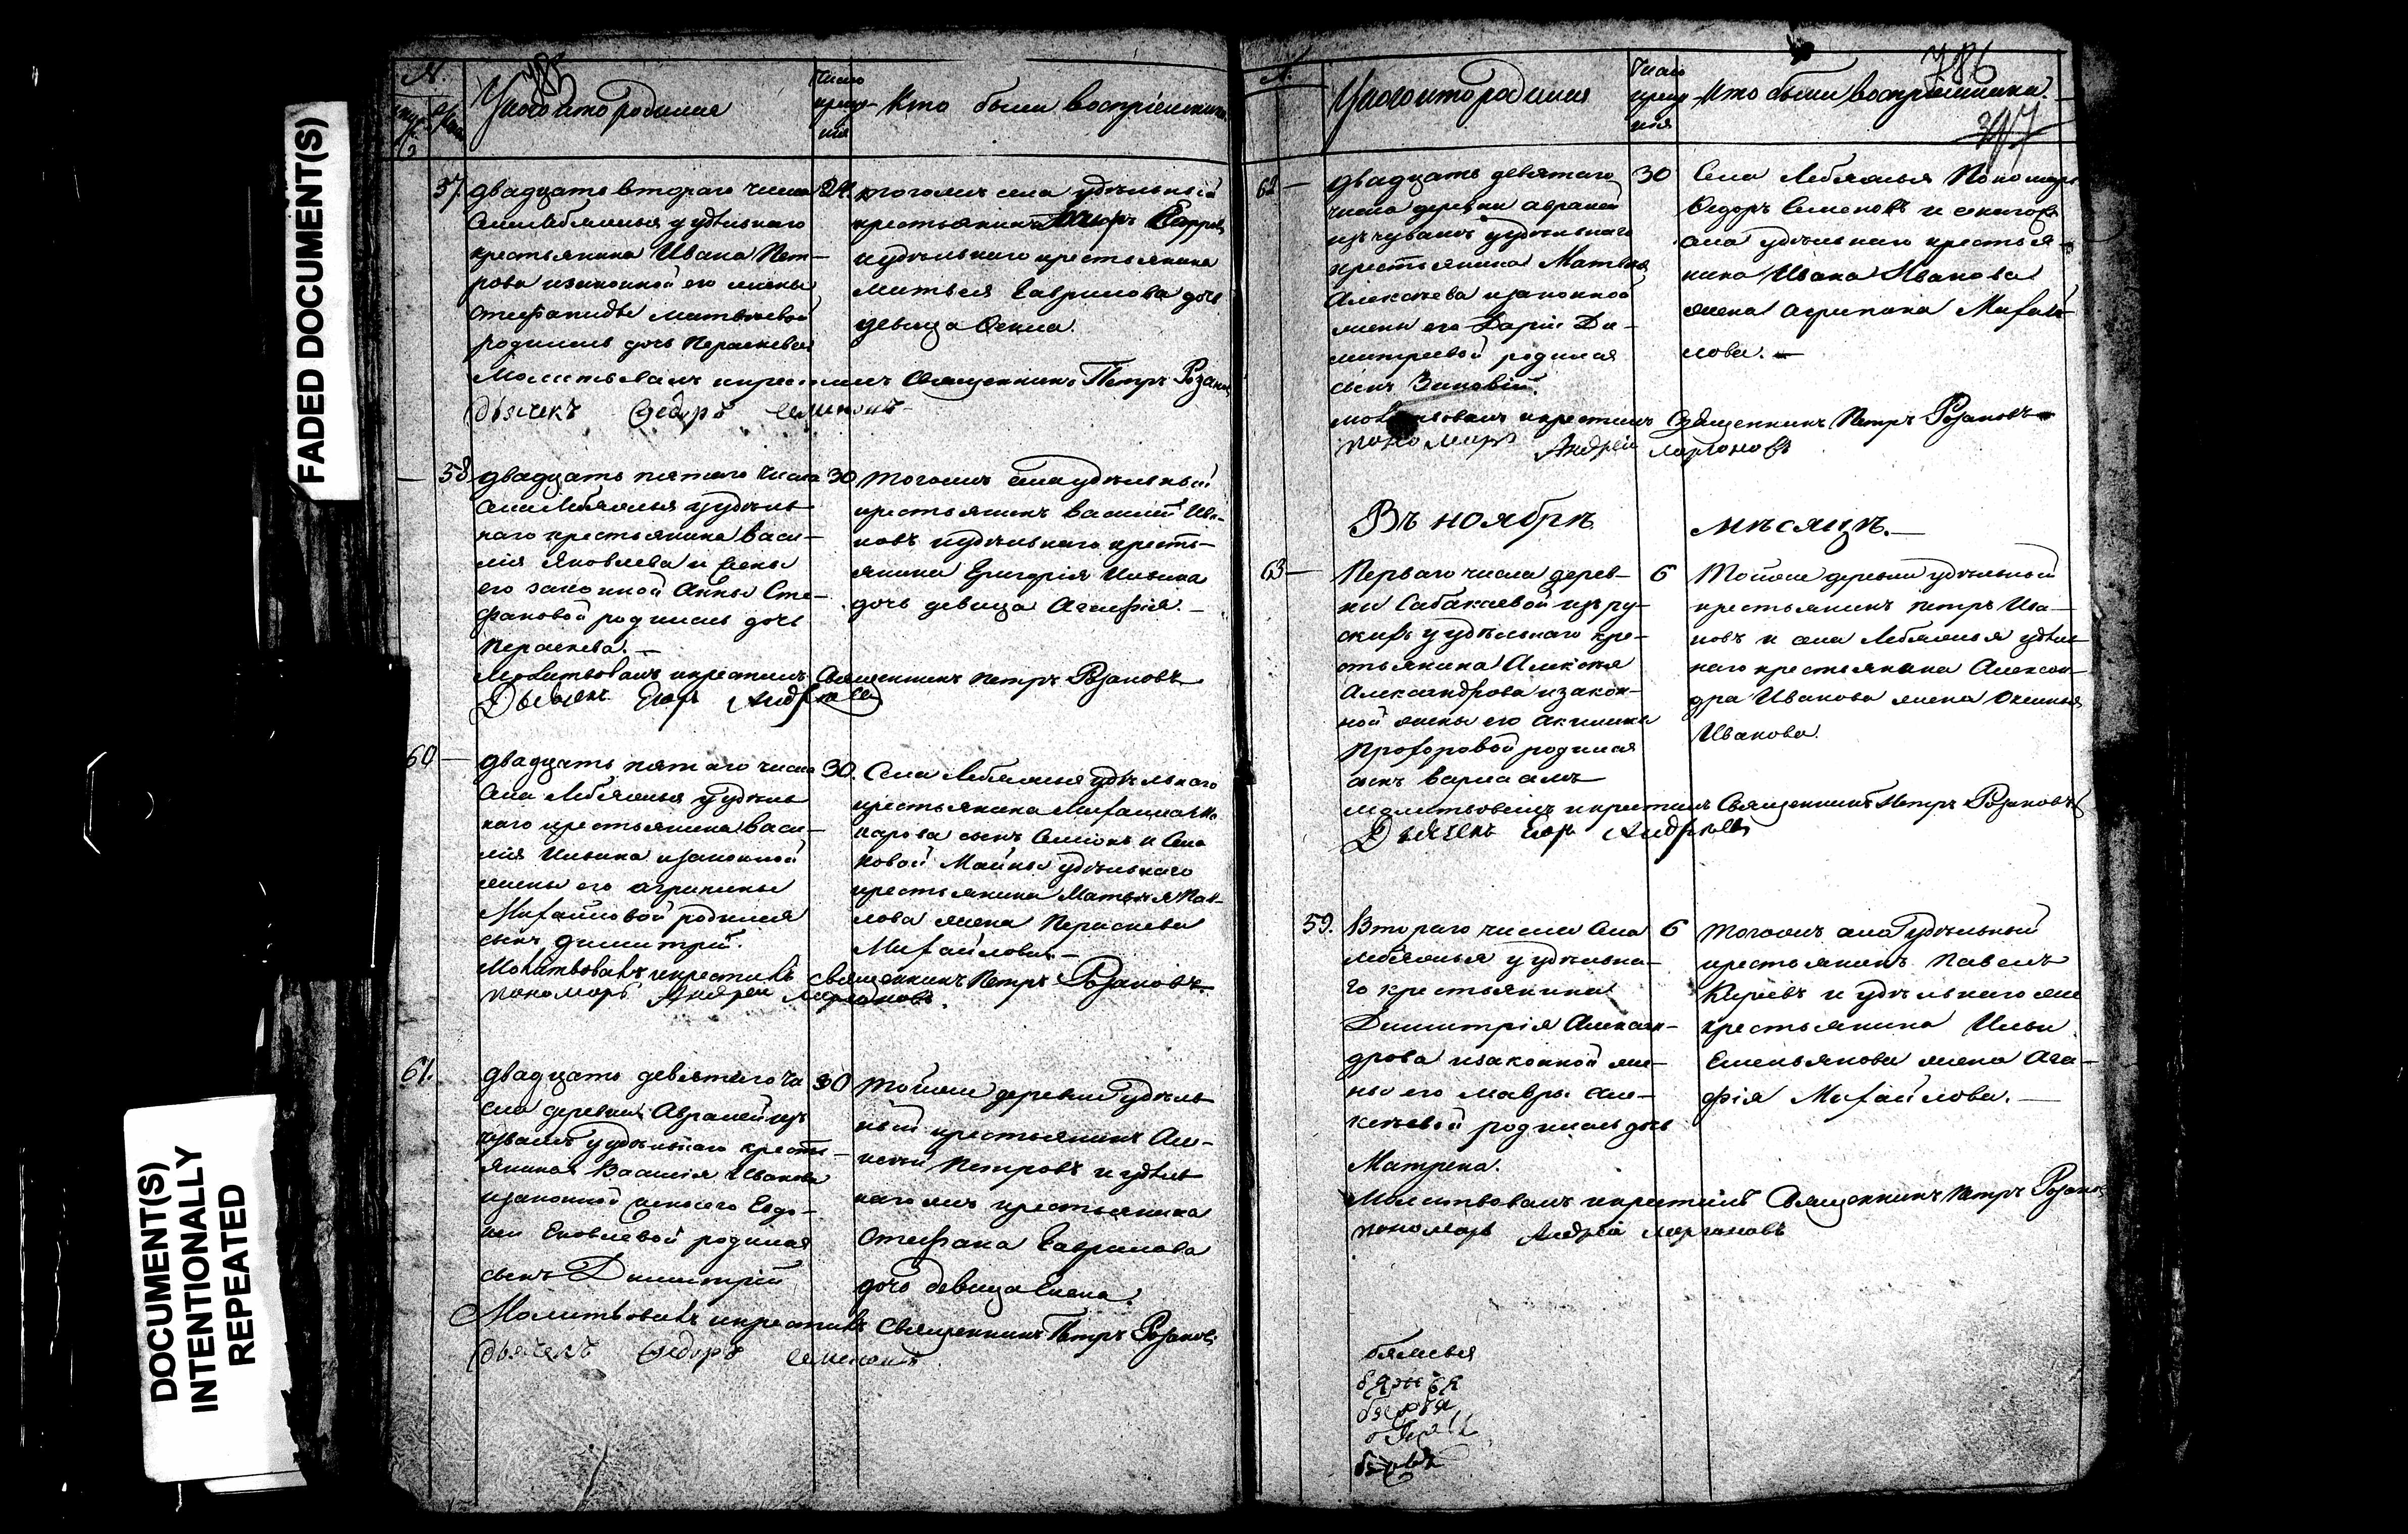 FADED DOCUMENT(S)
DOCUMENT(S)
INTENTIONALLY
REPEATED
785
№.
У кого кто родился
Число
креще-
ния
Кто были восприемники.
37.
двадцать втораго числа
Села Лебяжья у удѣльнаго
крестьянина Ивана Пет-
рова и законной его жены
Стефаниды Матвѣевой
родилась дочь Параскева
24.
тогожъ села удѣльный
крестьянинъ
и удѣльнаго крестьянина
Матвея Гаврилова дочь
девица
Молитвовалъ и крестилъ Священникъ Петръ Розановъ
Дьячекъ Ѳедоръ Семеновъ
58
двадцать пятаго числа
Села Лебяжья у удѣль-
наго крестьянина Васи-
лія Яковлева и жены
его законной Анны Сте-
фановой родилась дочь
Параскева. —
30
тогожъ села удѣльный
крестьянинъ Василій Ива-
новъ и удѣльнаго кресть-
янина Григорія Ильина
дочь девица Агафія. —
Молитвовалъ и крестилъ Священникъ Петръ Розановъ
Дьячекъ Егоръ Андреевъ
60 —
двадцать пятаго числа
Села Лебяжья у удѣль
наго крестьянина Васи-
лія Ильина и законной
жены его Агрипины
Михайловой родился
сынъ Димитрій.
30.
Села Лебяжья удѣльнаго
крестьянина Михайла
Назарова сынъ Семионъ и Села
новой Майны удѣльнаго
крестьянина Матвѣя Пав-
лова жена Параскева
Михайлова —
Молитвовалъ и крестилъ священникъ Петръ Розановъ
пономарь Андрей
61.
двадцать девятаго чи
сла деревни Авралей изъ
чувашъ у удѣльнаго кресть-
янина Василія Иванова
и законной жены его Евдо-
кіи Яковлевой родился
сынъ Димитрій
30
тойже деревни удѣль
ный крестьянинъ Але-
ксѣй Петровъ и удѣль
наго жъ крестьянина
Стефана Гаврилова
дочь девица Елена.
Молитвовалъ и крестилъ священникъ Петръ Розановъ
Дьячекъ Ѳедоръ Семеновъ
786
397
У кого кто родился
Число
креще-
ния
Кто были восприемники.
62 —
двадцать девятаго
числа деревни Авралей
изъ чувашъ у удѣльнаго
крестьянина Матвея
Алексѣева и законной
жены его Дарьи Ди-
митреевой родился
сынъ Зиновій
30
Села Лебяжья Пономарь
Ѳедоръ Семеновъ и
села удѣльнаго крестья-
нина Ивана Иванова
жена Агрипина Михай-
лова. —
Молитвовалъ и крестилъ Священникъ Петръ Розановъ
пономарь Андрей
Въ ноябрѣ мѣсяцѣ. —
63 —
Перваго числа дерев-
ни Сабакаевой изъ ру-
скихъ у удѣльнаго кре-
стьянина Алексѣя
Александрова и закон-
ной жены его Акилины
Прохоровой родился
сынъ Варлаамъ
6
тойже деревни удѣльный
крестьянинъ Петръ Ива-
новъ и села Лебяжья удѣль
наго крестьянина Алексан-
дра Иванова жена
Иванова.
Молитвовалъ и крестилъ Священникъ Петръ Розановъ
Дьячекъ Егоръ Андреевъ
59.
Втораго числа Села
Лебяжья у удѣльна-
го крестьянина
Димитрія Алексан-
дрова и законной же-
ны его Мавры Але-
ксѣевой родилась дочь
Матрена.
6
тогожъ села удѣльный
крестьянинъ Павелъ
Киреевъ и удѣльнаго же
крестьянина Ильи
Емельянова жена Ага-
фія Михайлова. —
Молитвовалъ и крестилъ Священникъ Петръ Розановъ
пономарь Андрей